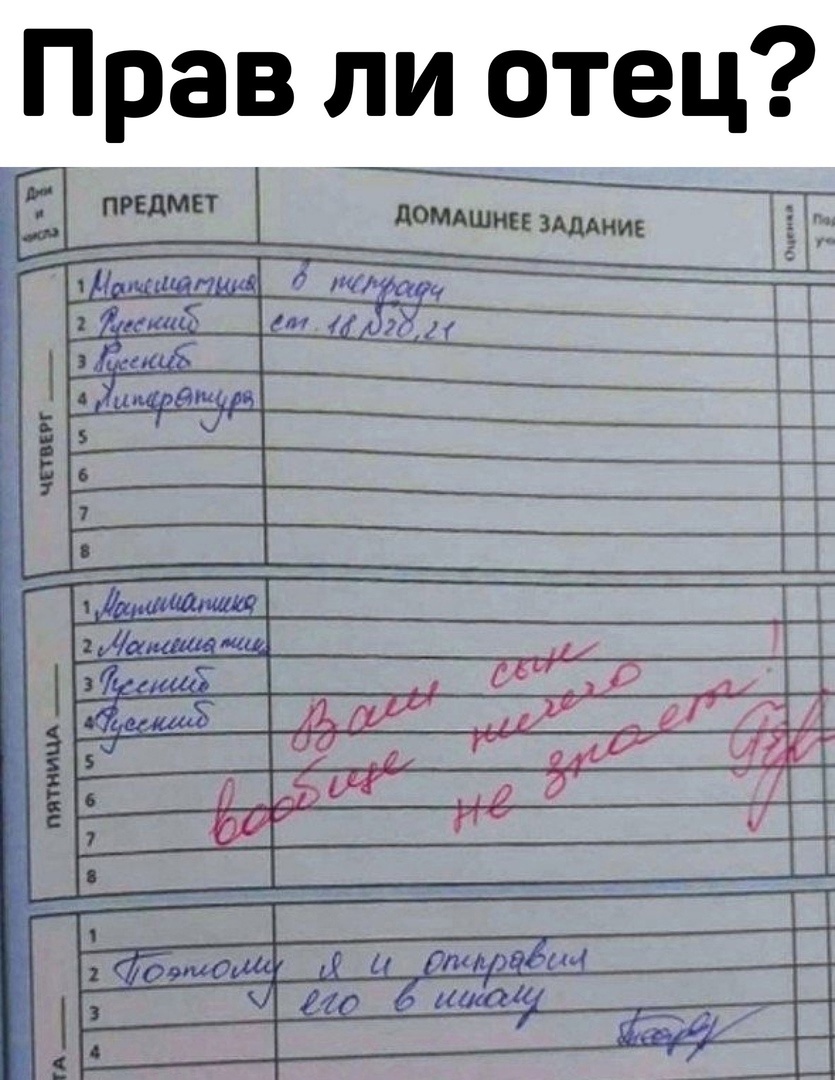 Прав ли отец?
Дни и числа
ПРЕДМЕТ
ДОМАШНЕЕ ЗАДАНИЕ
Оценка
ЧЕТВЕРГ
1 Математика в тетради
2 Русский ст. 18 №20,21
3 Русский
4 Литература
5
6
7
8
ПЯТНИЦА
1 Математика
2 Математик
3 Русский
4 Русский
5
6
7
8
Ваш сын
вообще ничего
не знает!
1
2 Поэтому я и отправил
3 его в школу
4